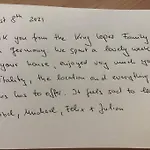 st 8th 2021
k you from the King Lopez Family
Germany. We spent a lovely week
your house, enjoyed very much
tality, the location and everything
has to offer. It feels sad to lea
Michael, Felix + Julian